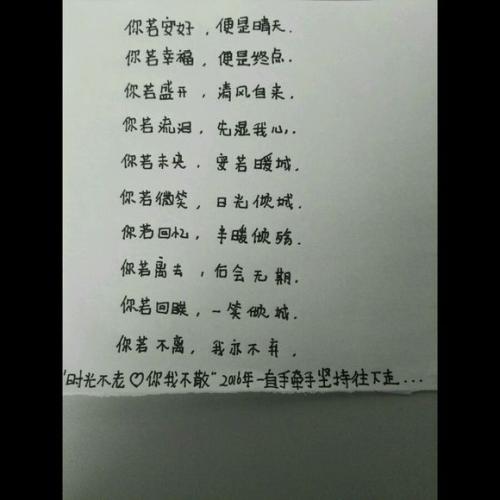 你若安好，便是晴天.
你若幸福，便是终点.
你若盛开，清风自来.
你若流泪，先湿我心.
你若未央，安若暖城.
你若微笑，日光倾城.
你若回忆，半暖倾殇.
你若离去，后会无期.
你若回眸，一笑倾城.
你若不离，我亦不弃，
"时光不老♡你我不散"2016年一直手牵手坚持往下走...